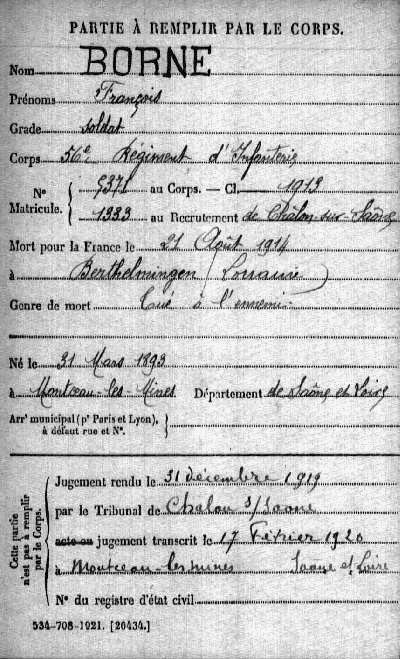 PARTIE À REMPLIR PAR LE CORPS.
Nom BORNE
Prénoms François
Grade soldat
Corps 56e Régiment d'Infanterie
N° Matricule. { 5371 au Corps. — Cl. 1913
1333 au Recrutement de Châlon-sur-Saône
Mort pour la France le 21 Août 1914
à Berthelmingen (Lorraine)
Genre de mort Tué à l'ennemi
Né le 31 Mars 1893
à Montceau-les-Mines Département de Saône et Loire
Arrt municipal (pr Paris et Lyon), à défaut rue et N°. }
Cette partie n'est pas à remplir par le Corps.
Jugement rendu le 31 décembre 1919
par le Tribunal de Chalon s/Saone
acte ou jugement transcrit le 17 Février 1920
à Montceau-les-mines Saone et Loire
N° du registre d'état civil
534-708-1921. [26434.]